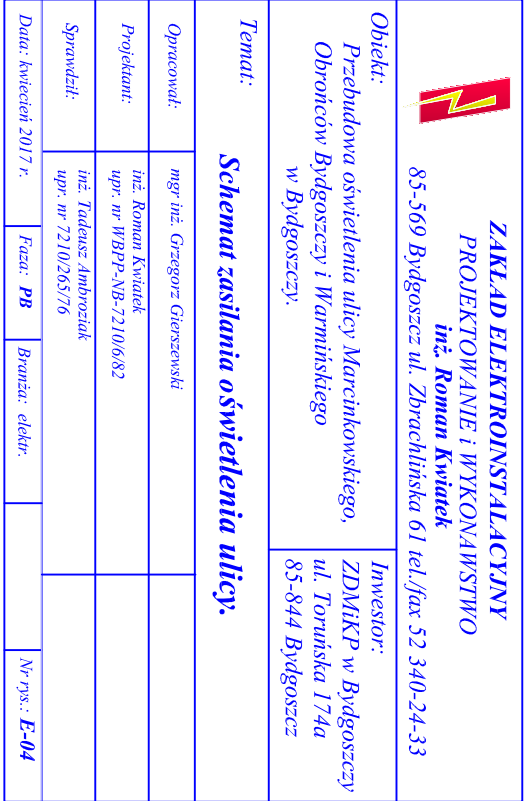 ZAKŁAD ELEKTROINSTALACYJNY
PROJEKTOWANIE i WYKONAWSTWO
inż. Roman Kwiatek
85-569 Bydgoszcz ul. Zbrachlińska 61 tel./fax 52 340-24-33
Obiekt:
Przebudowa oświetlenia ulicy Marcinkowskiego,
Obrońców Bydgoszczy i Warmińskiego
w Bydgoszczy.
Inwestor:
ZDMiKP w Bydgoszczy
ul. Toruńska 174a
85-844 Bydgoszcz
Temat:
Schemat zasilania oświetlenia ulicy.
Opracował:
mgr inż. Grzegorz Gierszewski
Projektant:
inż. Roman Kwiatek
upr. nr WBPP-NB-7210/6/82
Sprawdził:
inż. Tadeusz Ambroziak
upr. nr 7210/265/76
Data: kwiecień 2017 r.
Faza: PB
Branża: elektr.
Nr rys.: E-04